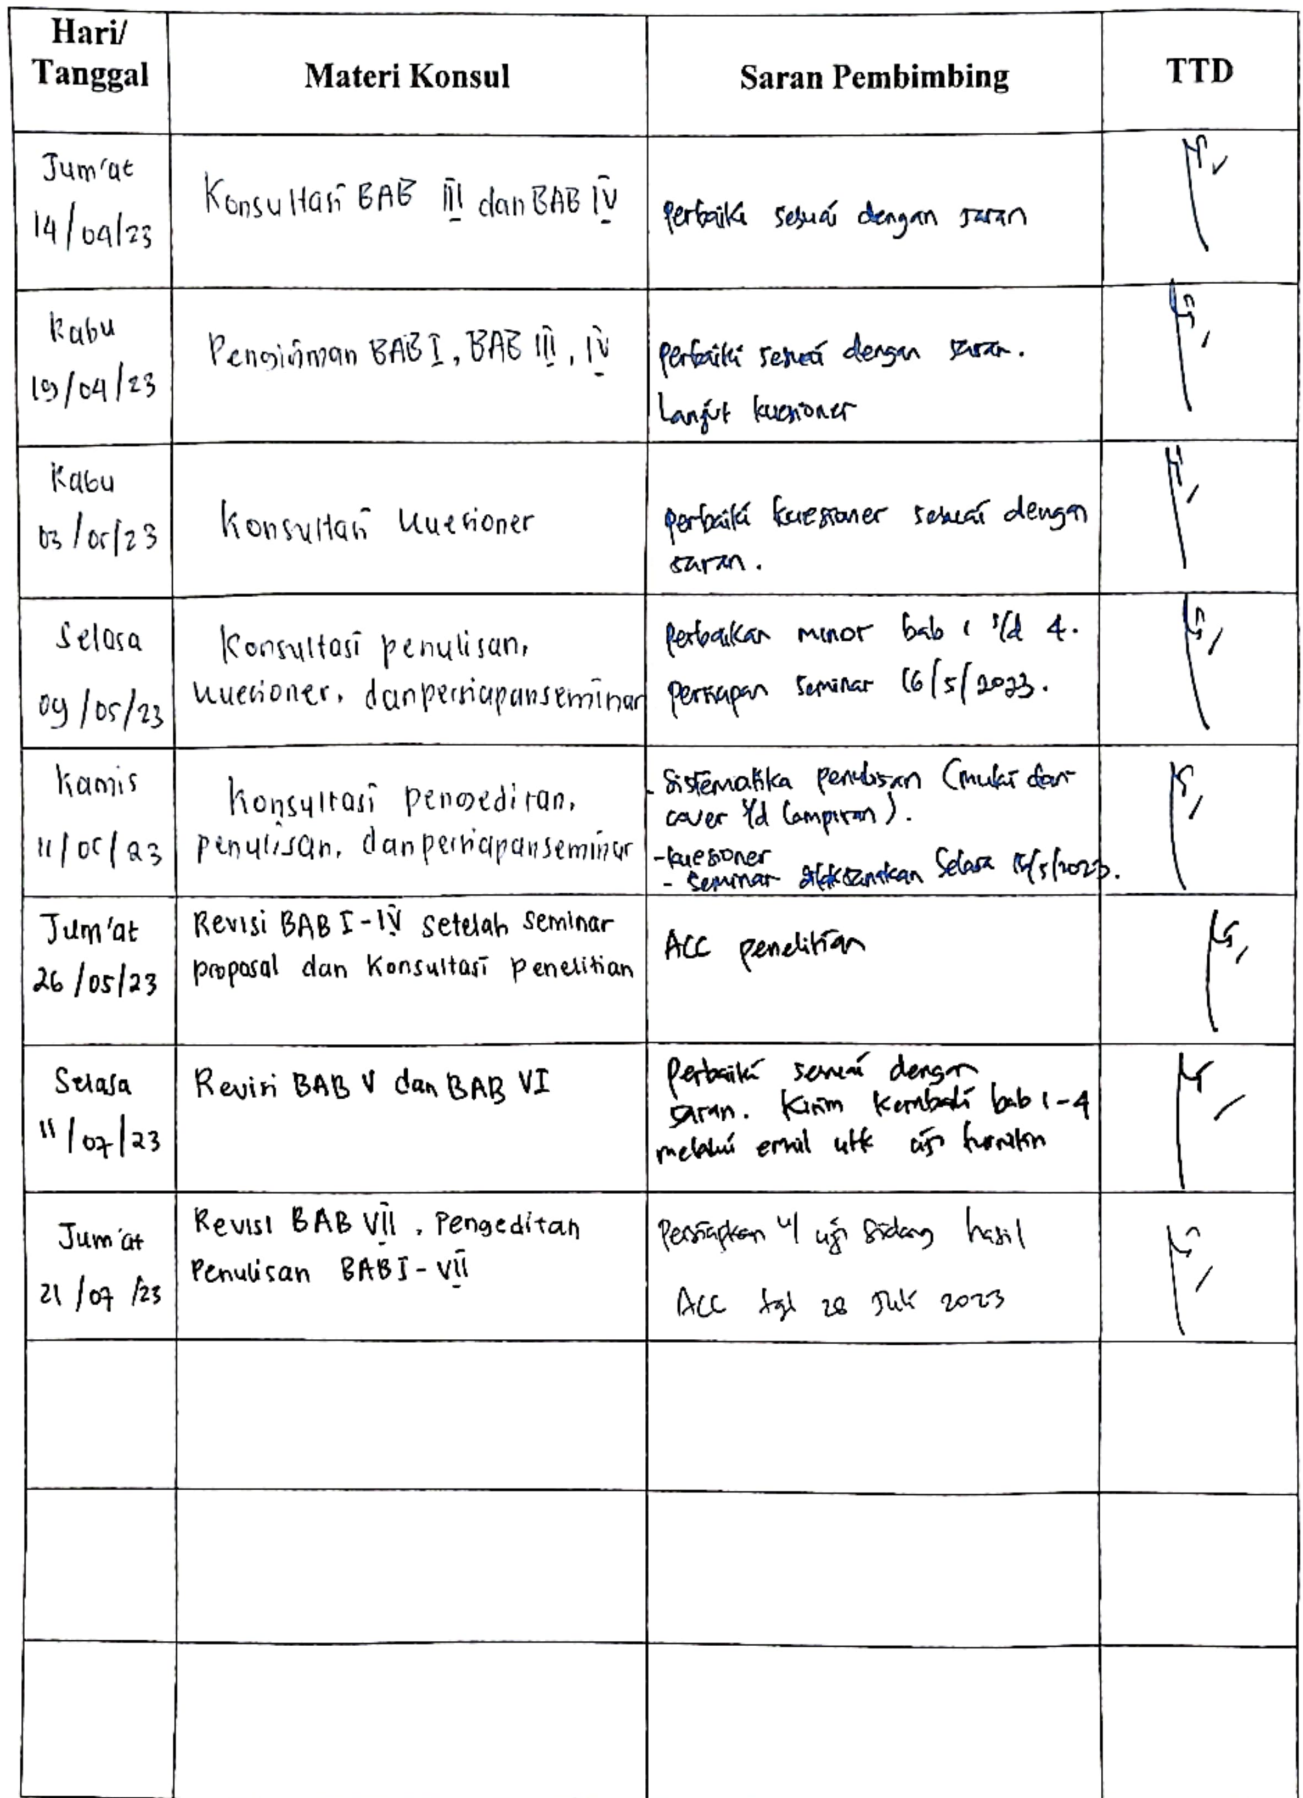 Hari/
Tanggal
Materi Konsul
Saran Pembimbing
TTD
Jum'at
14/04/23
Konsultasi BAB III dan BAB IV
perbaiki sesuai dengan saran
Rabu
19/04/23
Pengiriman BAB I, BAB III, IV
perbaiki sesuai dengan saran.
Lanjut kuesioner
Rabu
03/05/23
Konsultasi kuesioner
perbaiki kuesioner sesuai dengan
saran.
Selasa
09/05/23
Konsultasi penulisan,
kuesioner, dan persiapan seminar
Perbaikan minor bab 1 s/d 4.
persiapan seminar 16/5/2023.
Kamis
11/05/23
Konsultasi pengeditan,
penulisan, dan persiapan seminar
- Sistematika penulisan (mulai dari
cover s/d lampiran).
- kuesioner
- Seminar dilaksanakan Selasa 16/5/2023.
Jum'at
26/05/23
Revisi BAB I-IV setelah seminar
proposal dan Konsultasi penelitian
ACC penelitian
Selasa
11/07/23
Revisi BAB V dan BAB VI
Perbaiki sesuai dengan
saran. Kirim kembali bab 1-4
melalui email utk uji turnitin
Jum'at
21/07/23
Revisi BAB VII, Pengeditan
Penulisan BAB I-VII
Persiapkan u/ uji sidang hasil
ACC tgl 28 Juli 2023